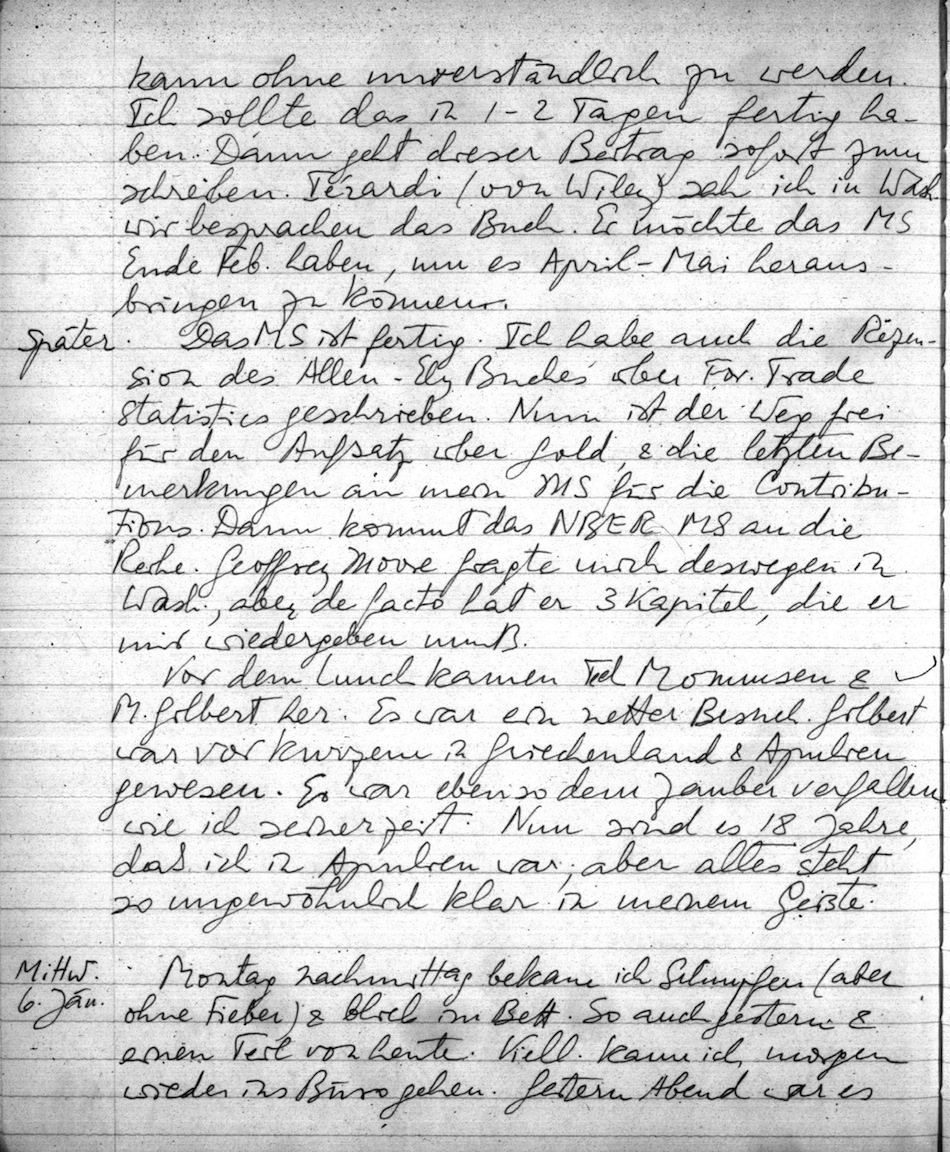 kann ohne unverständlich zu werden.
Ich sollte das in 1-2 Tagen fertig ha-
ben. Dann geht dieser Beitrag sofort zum
schreiben. Terardi (von Wiley) sah ich in Wash.
wir besprachen das Buch. Er möchte das MS
Ende Feb. haben, um es April-Mai heraus-
bringen zu können.
Später. Das MS ist fertig. Ich habe auch die Rezen-
sion des Allen-Ely Buches über For. Trade
Statistics geschrieben. Nun ist der Weg frei
für den Aufsatz über Gold, & die letzten Be-
merkungen an mein MS für die Contribu-
tions. Dann kommt das NBER MS an die
Reihe. Geoffrey Moore fragte mich deswegen in
Wash., aber de facto hat er 3 Kapitel, die er
mir wiedergeben muß.
Vor dem Lunch kamen Ted Mommsen &
M. Gilbert her. Es war ein netter Besuch. Gilbert
war vor kurzem in Griechenland & Apulien
gewesen. Er war ebenso dem Zauber verfallen
wie ich seinerzeit. Nun sind es 18 Jahre,
daß ich in Apulien war, aber alles steht
so ungewöhnlich klar in meinem Geiste.
Mittw.
6. Jän.
Montag nachmittag bekam ich Schnupfen (aber
ohne Fieber) & blieb im Bett. So auch gestern &
einen Teil von heute. Viell. kann ich morgen
wieder ins Büro gehen. Gestern Abend war es